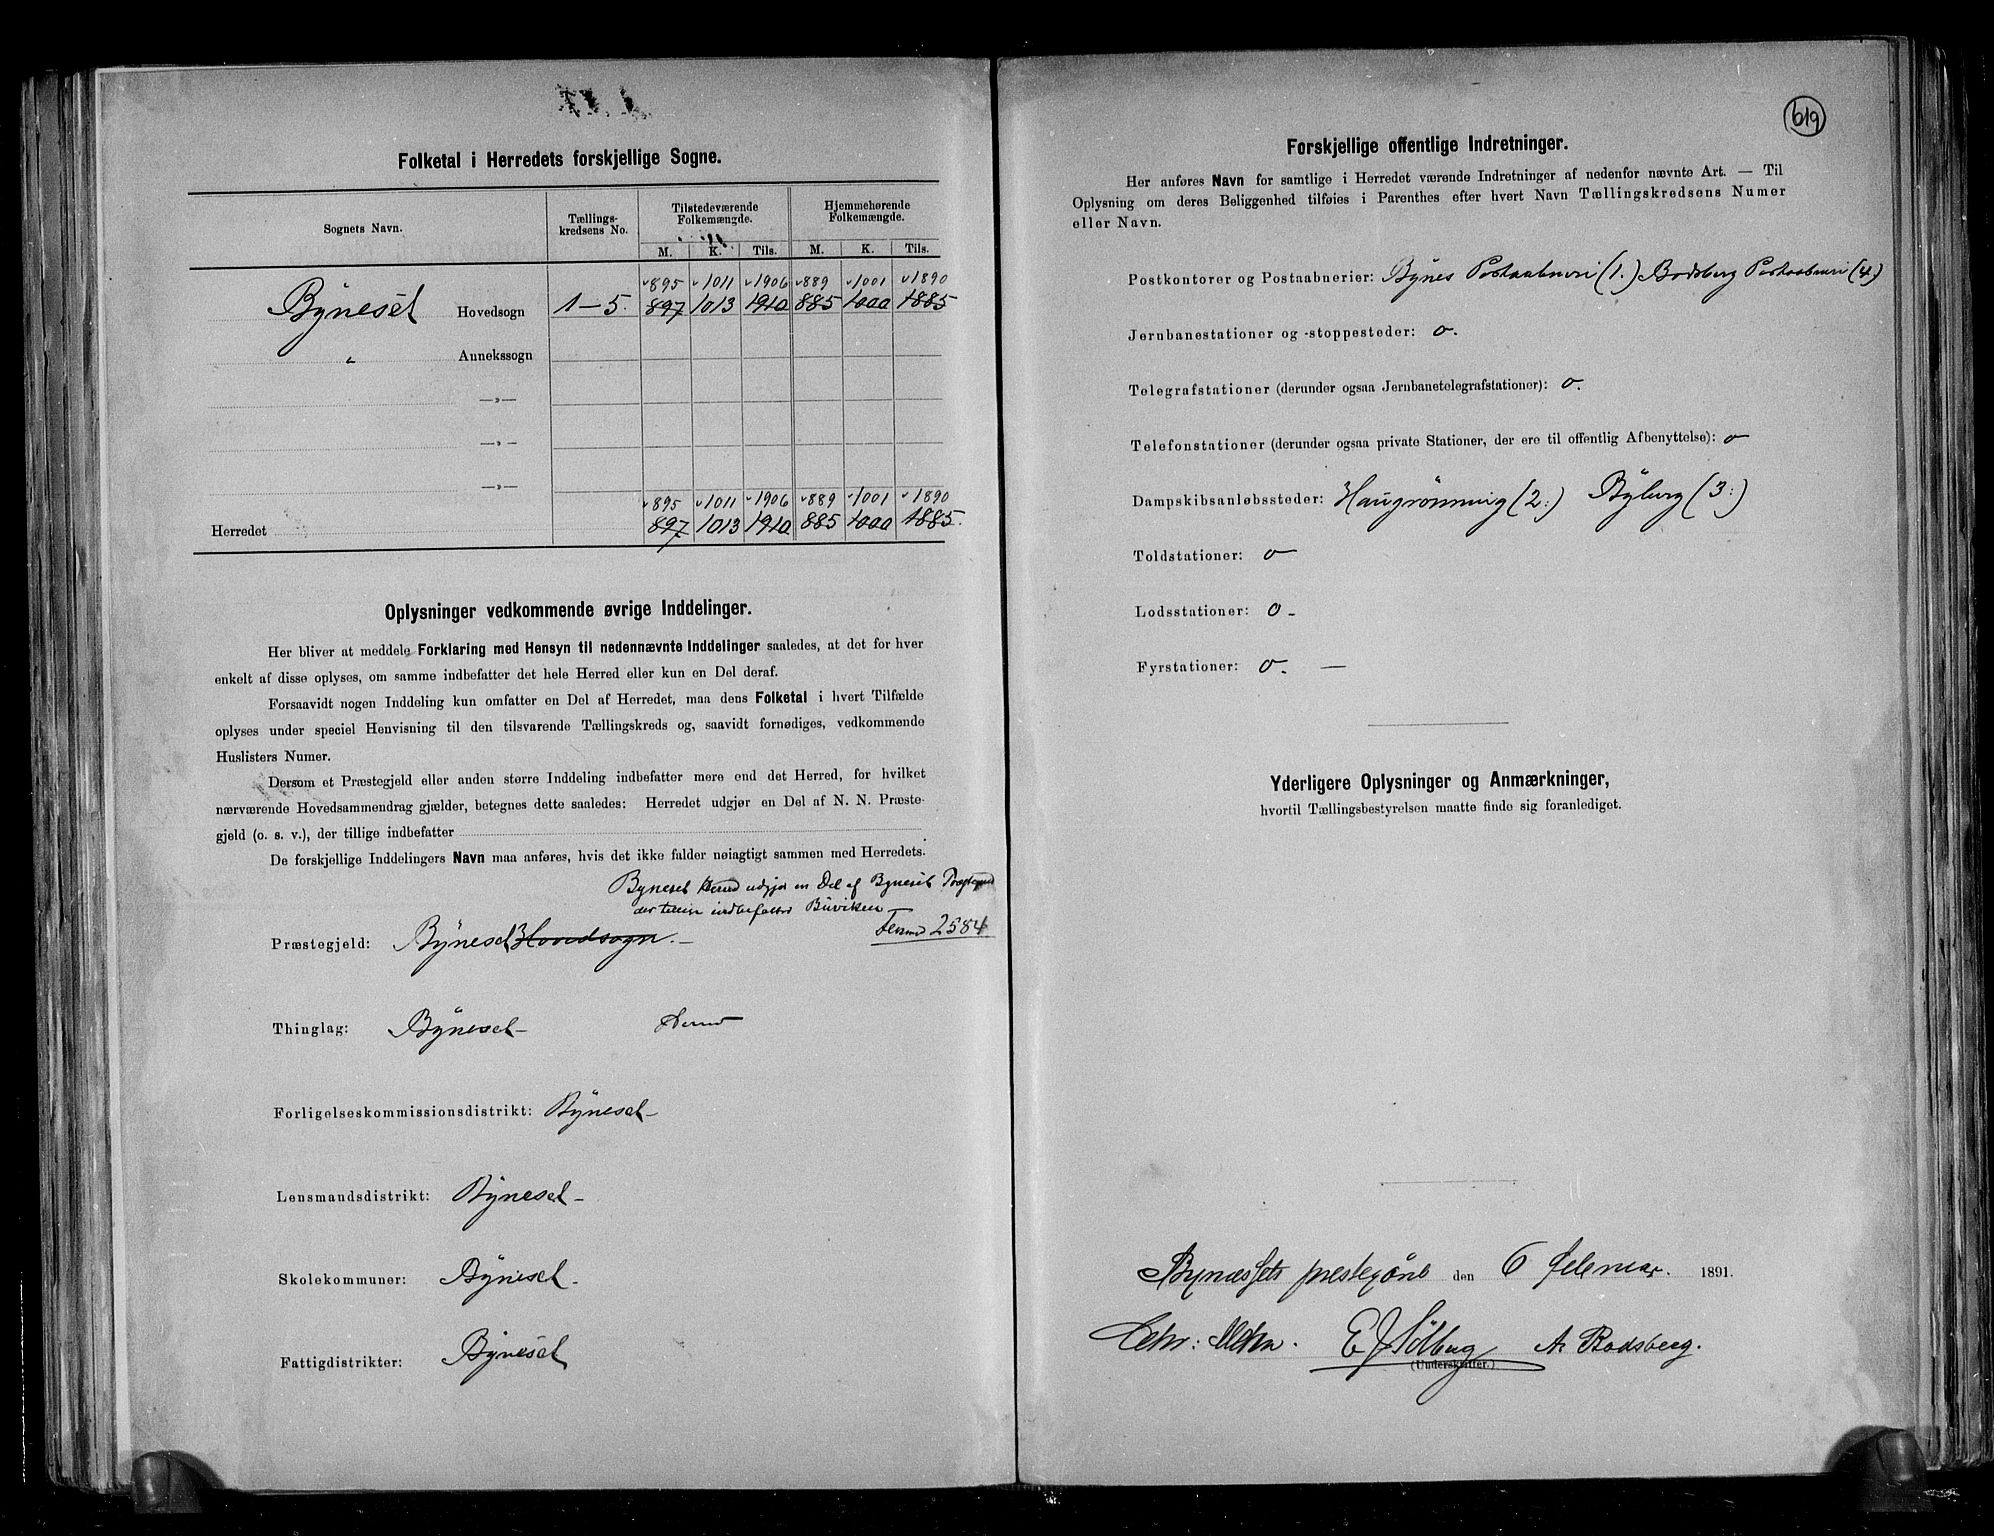 Folketal i Herredets forskjellige Sogne.
Sognets Navn. Tællings- kredsens No. Tilstedeværende Folkemængde. Hjemmehørende Folkemængde.
M. K. Tils. M. K. Tils.
895 1011 1906 889 1001 1890
Bÿneset Hovedsogn 1-5. 897 1013 1910 885 1000 1885
" Annekssogn
—»—
—»—
—»—
895 1011 1906 889 1001 1890
Herredet 897 1013 1910 885 1000 1885.
Oplysninger vedkommende øvrige Inddelinger.
Her bliver at meddele Forklaring med Hensyn til nedennævnte Inddelinger saaledes, at det for hver
enkelt af disse oplyses, om samme indbefatter det hele Herred eller kun en Del deraf.
Forsaavidt nogen Inddeling kun omfatter en Del af Herredet, maa dens Folketal i hvert Tilfælde
oplyses under speciel Henvisning til den tilsvarende Tællingskreds og, saavidt fornødiges, vedkommende
Huslisters Numer.
Dersom et Præstegjeld eller anden større Inddeling indbefatter mere end det Herred, for hvilket
nærværende Hovedsammendrag gjælder, betegnes dette saaledes: Herredet udgjør en Del af N. N. Præste-
gjeld (o. s. v.), der tillige indbefatter
De forskjellige Inddelingers Navn maa anføres, hvis det ikke falder nøiagtigt sammen med Herredets.
Byneset Herred udgjør en Del af Byneset Præstegjeld
der tillige indbefatter Buviken
Herred 2584
Præstegjeld: Bÿneset Hovedsogn.
Thinglag: Bÿneset Herred
Forligelseskommissionsdistrikt: Bÿneset
Lensmandsdistrikt: Bÿneset
Skolekommuner: Bÿneset
Fattigdistrikter: Bÿneset
619
Forskjellige offentlige Indretninger.
Her anføres Navn for samtlige i Herredet værende Indretninger af nedenfor nævnte Art. — Til
Oplysning om deres Beliggenhed tilføies i Parenthes efter hvert Navn Tællingskredsens Numer
eller Navn.
Postkontorer og Postaabnerier: Bÿnes Postaabneri (1.) Bodsberg Postaabneri (4.)
Jernbanestationer og -stoppesteder: o.
Telegrafstationer (derunder ogsaa Jernbanetelegrafstationer): o.
Telefonstationer (derunder ogsaa private Stationer, der ere til offentlig Afbenyttelse): o
Dampskibsanløbssteder: Haugrønning (2:) Bÿberg (3:)
Toldstationer: o
Lodsstationer: o-
Fyrstationer: o. —
Yderligere Oplysninger og Anmærkninger,
hvortil Tællingsbestyrelsen maatte finde sig foranlediget.
den 6 februar. 1891.
E J Sølberg A. Bodsberg.
(Underskrifter.)